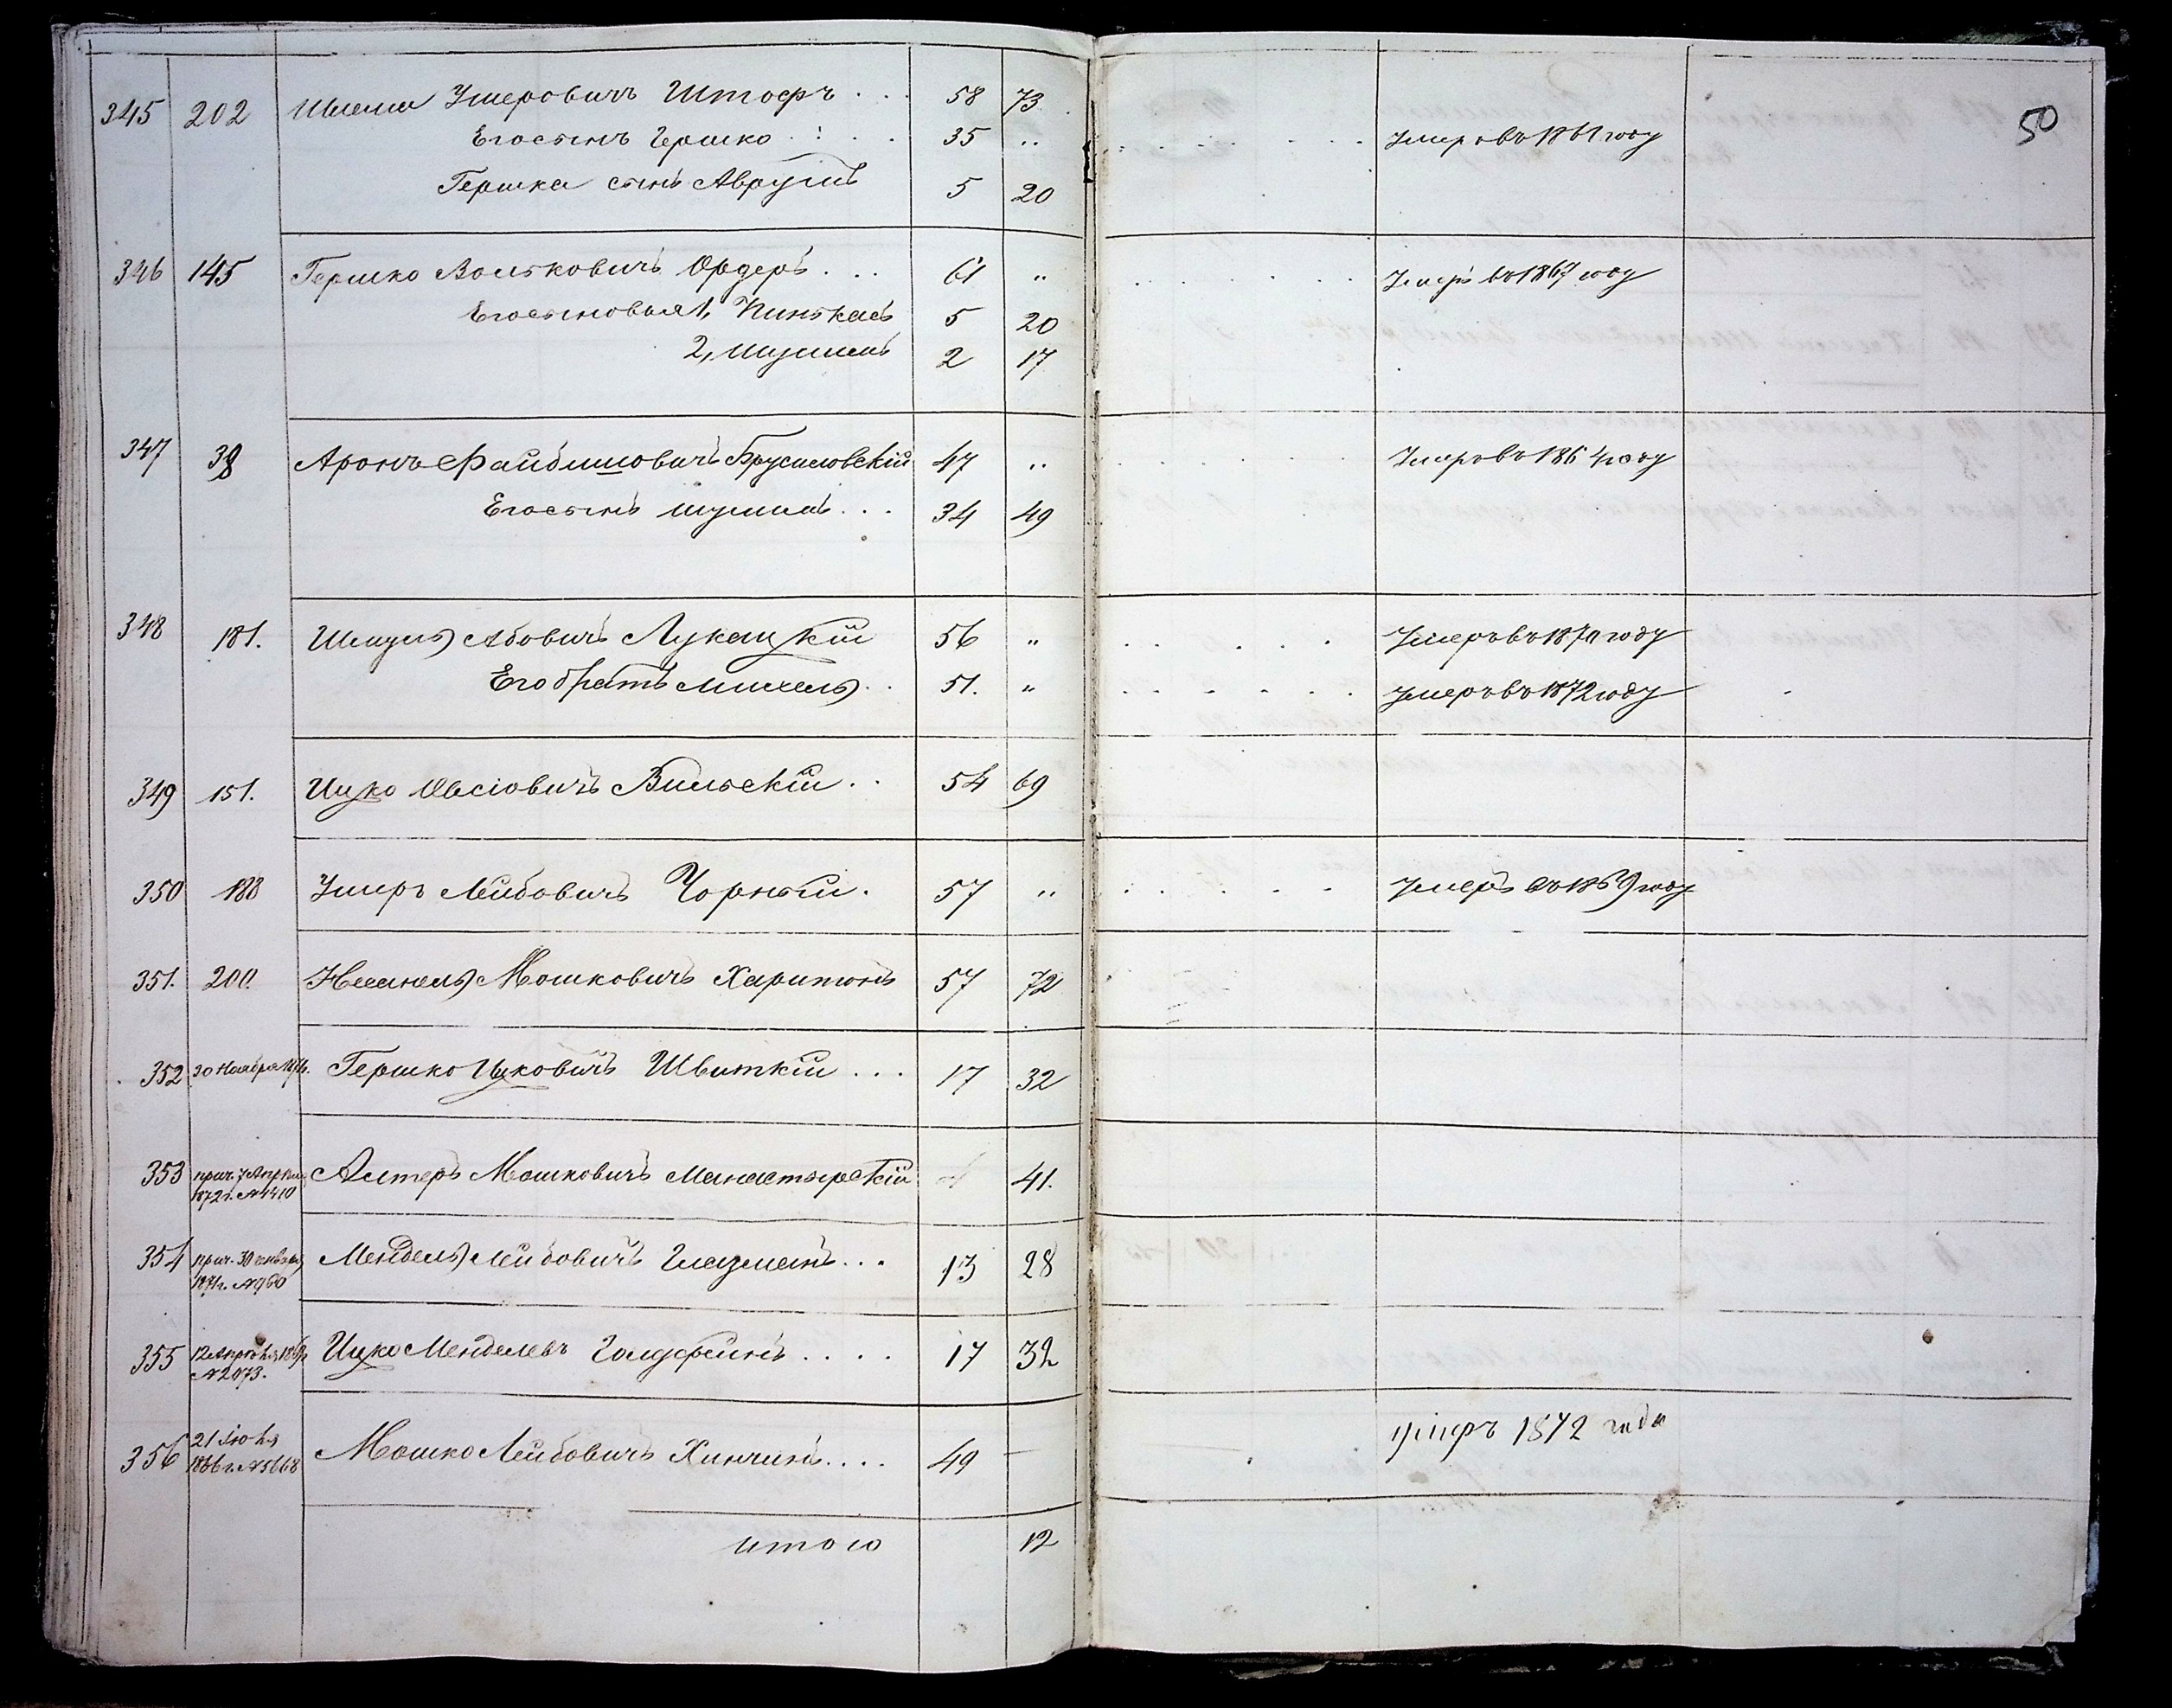 50
345 202 Шлема Умеровичъ Штофъ . . . 58 73
Его сынъ Гершко . . . 35 " Умеръ въ 1861 году
Гершка сынъ Аврумъ 5 20
346 145 Гершко Вольковичъ Ордеръ . . . 61 " Умеръ въ 1867 году
Его сыновья 1, Пинькасъ 5 20
2, Шулимъ 2 17
347 38 Аронъ Файбишовичъ Брусиловскій 47 " Умеръ въ 1864 году
Его сынъ Шулимъ . . . 34 49
348 181. Шмуль Абовичъ Лукацкій 56 " Умеръ въ 1870 году
Его братъ Михель . . 51. " Умеръ въ 1872 году
349 151. Ицко Овсіовичъ Вильскій . . 54 69
350 188 Умеръ Лейбовичъ Чорный . 57 " Умеръ въ 1869 году
351. 200. Мошковичъ Харитонъ 57 72
352 30 Ноября Гершко Ицковичъ Швыткій . . . 17 32
353 прич. 7 Апрѣля Алтеръ Мошковичъ Манастырскій 41.
1872 г. № 4410
354 прич. 30 января Мендель Лейбовичъ Глазманъ . . . 13 28
1871 г. № 960
355 12 Апрѣля Ицко Менделевъ Голдфейнъ . . . . 17 32
№ 2073.
356 21 Іюня Мошко Лейбовичъ Хинчинъ . . . . 49 — умеръ 1872 года
1866 г. № 5668
итого 12